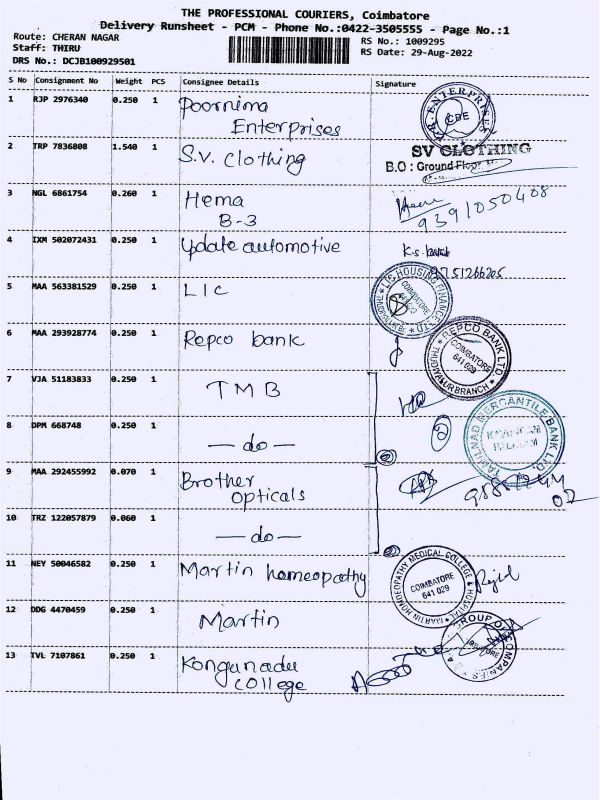 THE PROFESSIONAL COURIERS, Coimbatore
Delivery Runsheet - PCM - Phone No.:0422-3505555 - Page No.:1
Route: CHERAN NAGAR
Staff: THIRU
DRS No.: DCJB100929501
RS No.: 1009295
RS Date: 29-Aug-2022
S No Consignment No Weight PCS Consignee Details Signature
1 RJP 2976340 0.250 1 Poornima
Enterprises
ENTERPRISES
CBE
2 TRP 7836808 1.540 1 S.V. Clothing
SV CLOTHING
B.O : Ground Floor
3 NGL 6861754 0.260 1 Hema
B-3
9391050408
4 IXM 502072431 0.250 1 Update automotive
K.S.
9751266205
5 MAA 563381529 0.250 1 LIC
LIC HOUSING FINANCE LTD
COIMBATORE
6 MAA 293928774 0.250 1 Repco bank
REPCO BANK LTD.
COIMBATORE
641 029
THUDIYALUR BRANCH
7 VJA 51183833 0.250 1 TMB
8 DPM 668748 0.250 1 - do -
2
TAMILNAD MERCANTILE BANK LTD.
9 MAA 292455992 0.070 1 Brother
opticals
10 TRZ 122057879 0.060 1 - do -
2
11 NEY 50046582 0.250 1 Martin homeopathy
MARTIN HOMOEOPATHY MEDICAL COLLEGE & HOSPITAL
COIMBATORE
641 029
12 DDG 4470459 0.250 1 Martin
GROUP OF COMPANIES
13 TVL 7107861 0.250 1 Kongunadu
College